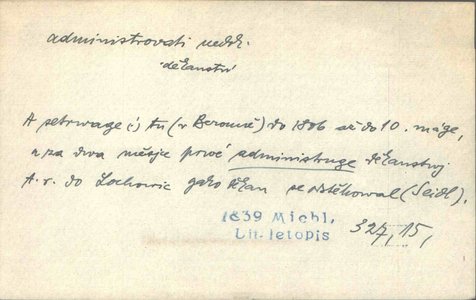 administrovati nedok.
děkanství
A setrwage (i) tu (v Berouně) do 1806 až do 10. máge,
a za dwa měsjce prwé administruge děkanstwj
A. r. do Lochowic gako děkan se odstěhowal (Seidl).
1839 Michl,
Lit. letopis 327, 15,